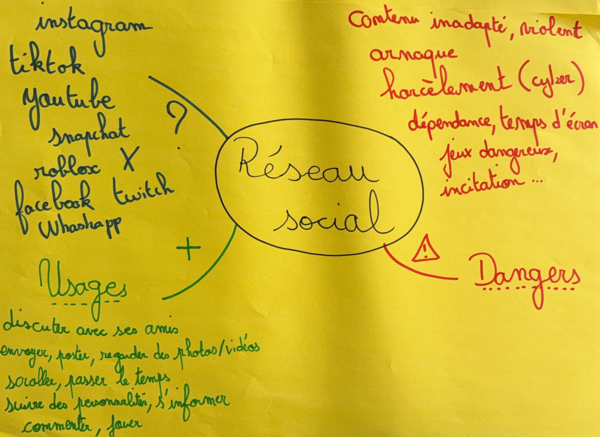 instagram
tiktok
youtube
snapchat
roblox X
facebook twitch
Whashapp
?
Contenu inadapté, violent
arnaque
harcèlement (cyber)
dépendance, temps d'écran
jeux dangereux,
incitation ...
Réseau
social
+
Usages
discuter avec ses amis
envoyer, poster, regarder des photos/vidéos
scroller, passer le temps
suivre des personnalités, s'informer
commenter, jouer
!
Dangers